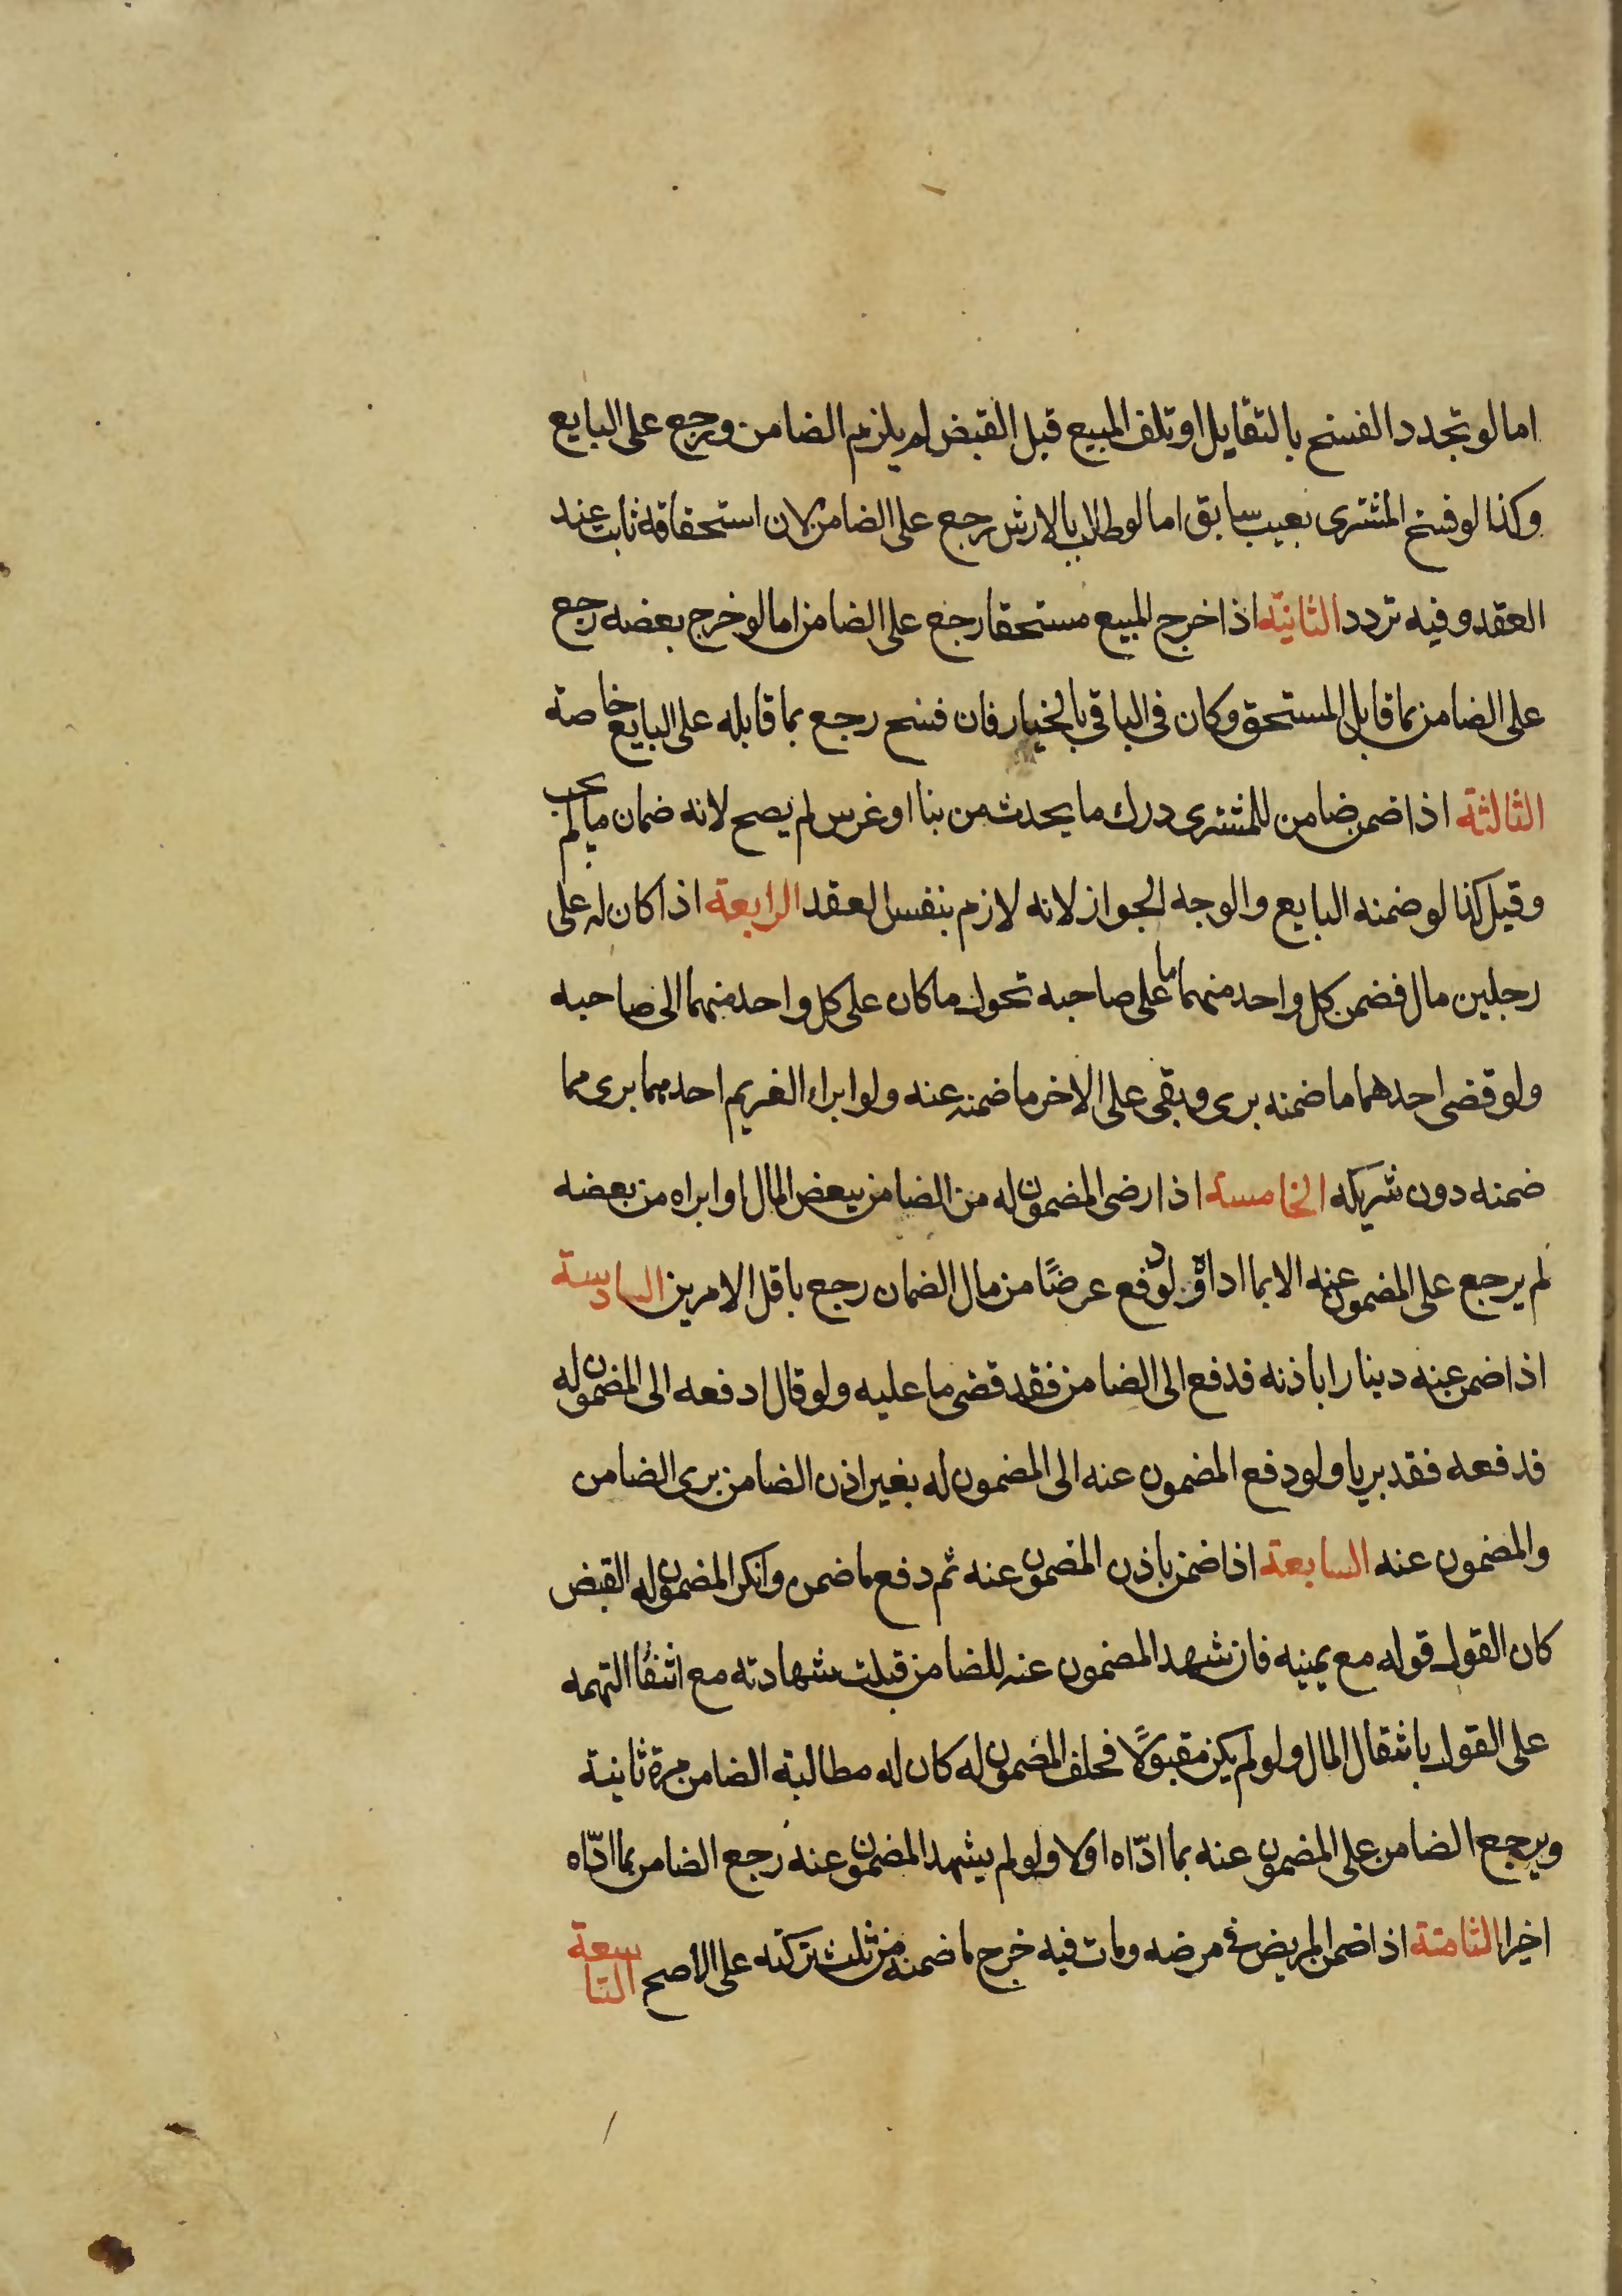 اما لو تجدد الفسخ بالتقايل او تلف المبيع قبل القبض لم يلزم الضامن ورجع على البايع
وكذا لو فسخ المشترى بعيب سابق اما لو طالب بالارش رجع على الضامن لان استحقاقه ثابت عند
العقد وفيه تردد الثانية اذا خرج المبيع مستحقا رجع على الضامن اما لو خرج بعضه رجع
على الضامن بما قابل المستحق وكان فى الباقى بالخيار فان فسخ رجع بما قابله على البايع خاصة
الثالثة اذا ضمن ضامن للمشترى درك ما يحدث من بنا او غرس لم يصح لانه ضمان ما لم يجب
وقيل كذا لو ضمنه البايع والوجه الجواز لانه لازم بنفس العقد الرابعة اذا كان له على
رجلين مال فضمن كل واحد منهما ما على صاحبه تحول ما كان على كل واحد منهما الى صاحبه
ولو قضى احدهما ما ضمنه برى وبقى على الاخر ما ضمنه عنه ولو ابراء الغريم احدهما برى مما
ضمنه دون شريكه الخامسة اذا رضى المضمون له من الضامن ببعض المال او ابراه من بعضه
لم يرجع على المضمون عنه الا بما اداه ولو دفع عرضًا من مال الضمان رجع باقل الامرين السادسة
اذا ضمن عنه دينارا باذنه فدفع الى الضامن فقد قضى ما عليه ولو قال ادفعه الى المضمون له
فدفعه فقد بريا ولو دفع المضمون عنه الى المضمون له بغير اذن الضامن برى الضامن
والمضمون عنه السابعة اذا ضمن باذن المضمون عنه ثم دفع ما ضمن وانكر المضمون له القبض
كان القول قوله مع يمينه فان شهد المضمون عنه للضامن قبلت شهادته مع انتفا التهمه
على القول بانتقال المال ولو لم يكن مقبولًا فحلف المضمون له كان له مطالبة الضامن مرة ثانية
ويرجع الضامن على المضمون عنه بما ادّاه اولا ولو لم يشهد المضمون عنه رجع الضامن بما ادّاه
اخيرا الثامنة اذا ضمن المريض فى مرضه ومات فيه خرج ما ضمنه من ثلث تركته على الاصح التاسعة